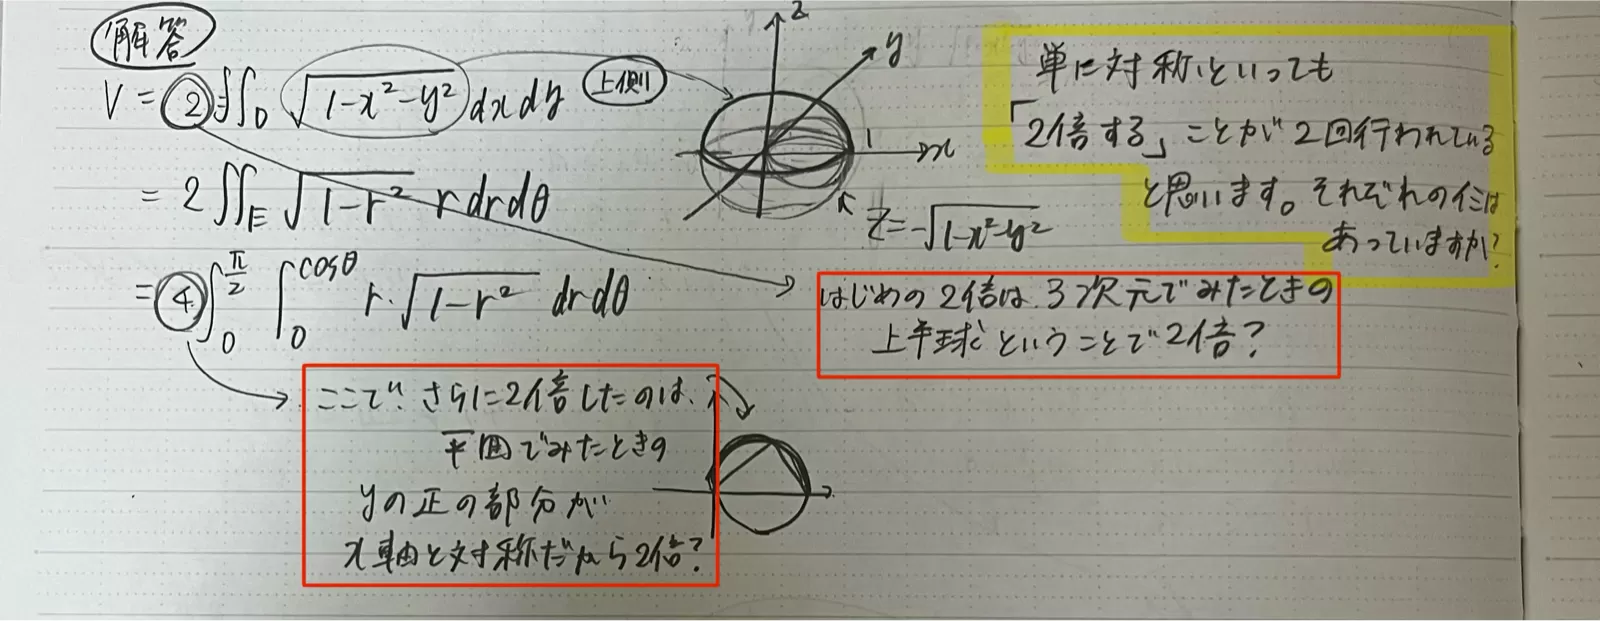 解答
V = 2∬_D √(1-x²-y²) dxdy
上側
z
y
x
1
z=-√(1-x²-y²)
= 2∬_E √(1-r²) r dr dθ
= 4∫_0^{π/2} ∫_0^{cosθ} r·√(1-r²) dr dθ
単に対称といっても
「2倍する」ことが2回行われている
と思います。それぞれのイミは
あっていますか?
はじめの2倍は、3次元でみたときの
上半球ということで2倍?
ここで、さらに2倍したのは、
平面でみたときの
yの正の部分が
x軸と対称だから2倍?